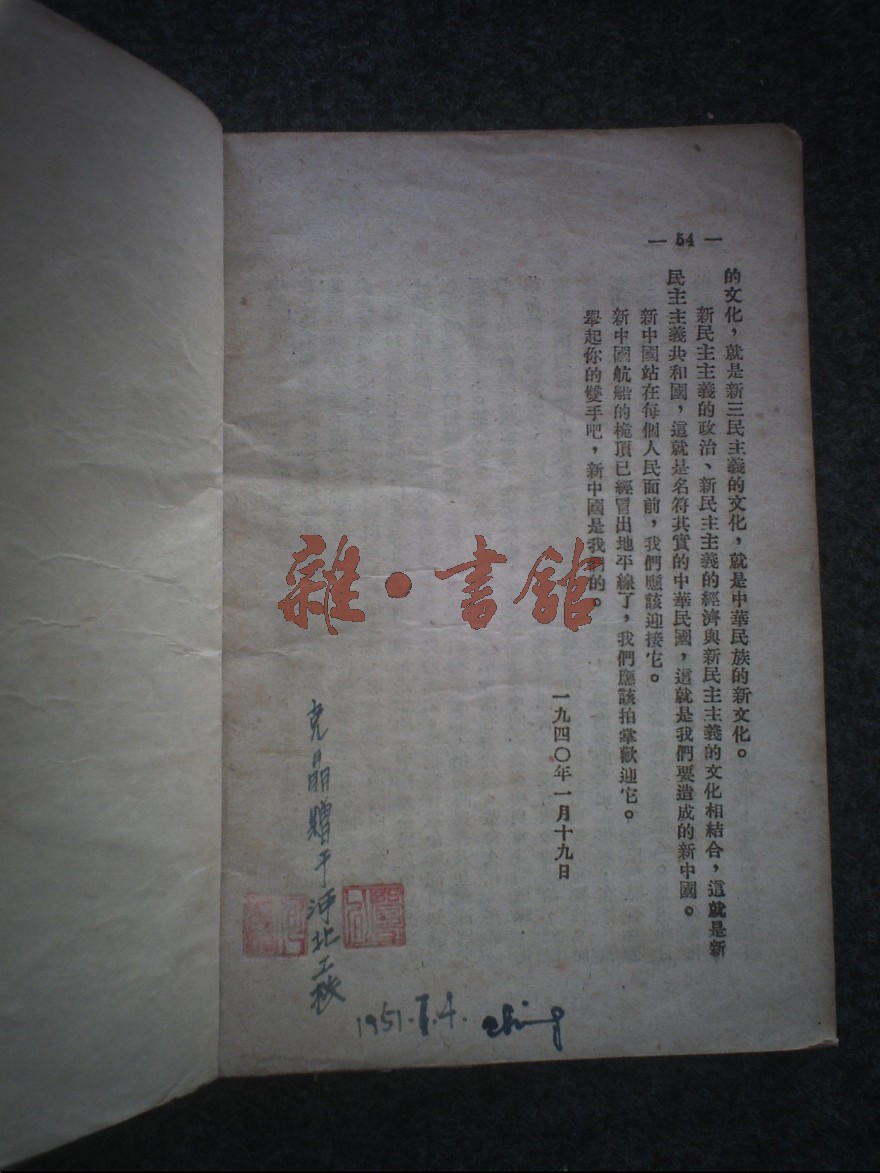 — 54 —
的文化，就是新三民主義的文化，就是中華民族的新文化。
新民主主義的政治、新民主主義的經濟與新民主主義的文化相結合，這就是新
民主主義共和國，這就是名符其實的中華民國，這就是我們要造成的新中國。
新中國站在每個人民面前，我們應該迎接它。
新中國航船的桅頂已經冒出地平線了，我們應該拍掌歡迎它。
舉起你的雙手吧，新中國是我們的。
一九四〇年一月十九日
雜·書館
克晶贈于河北工校
1951.7.4.